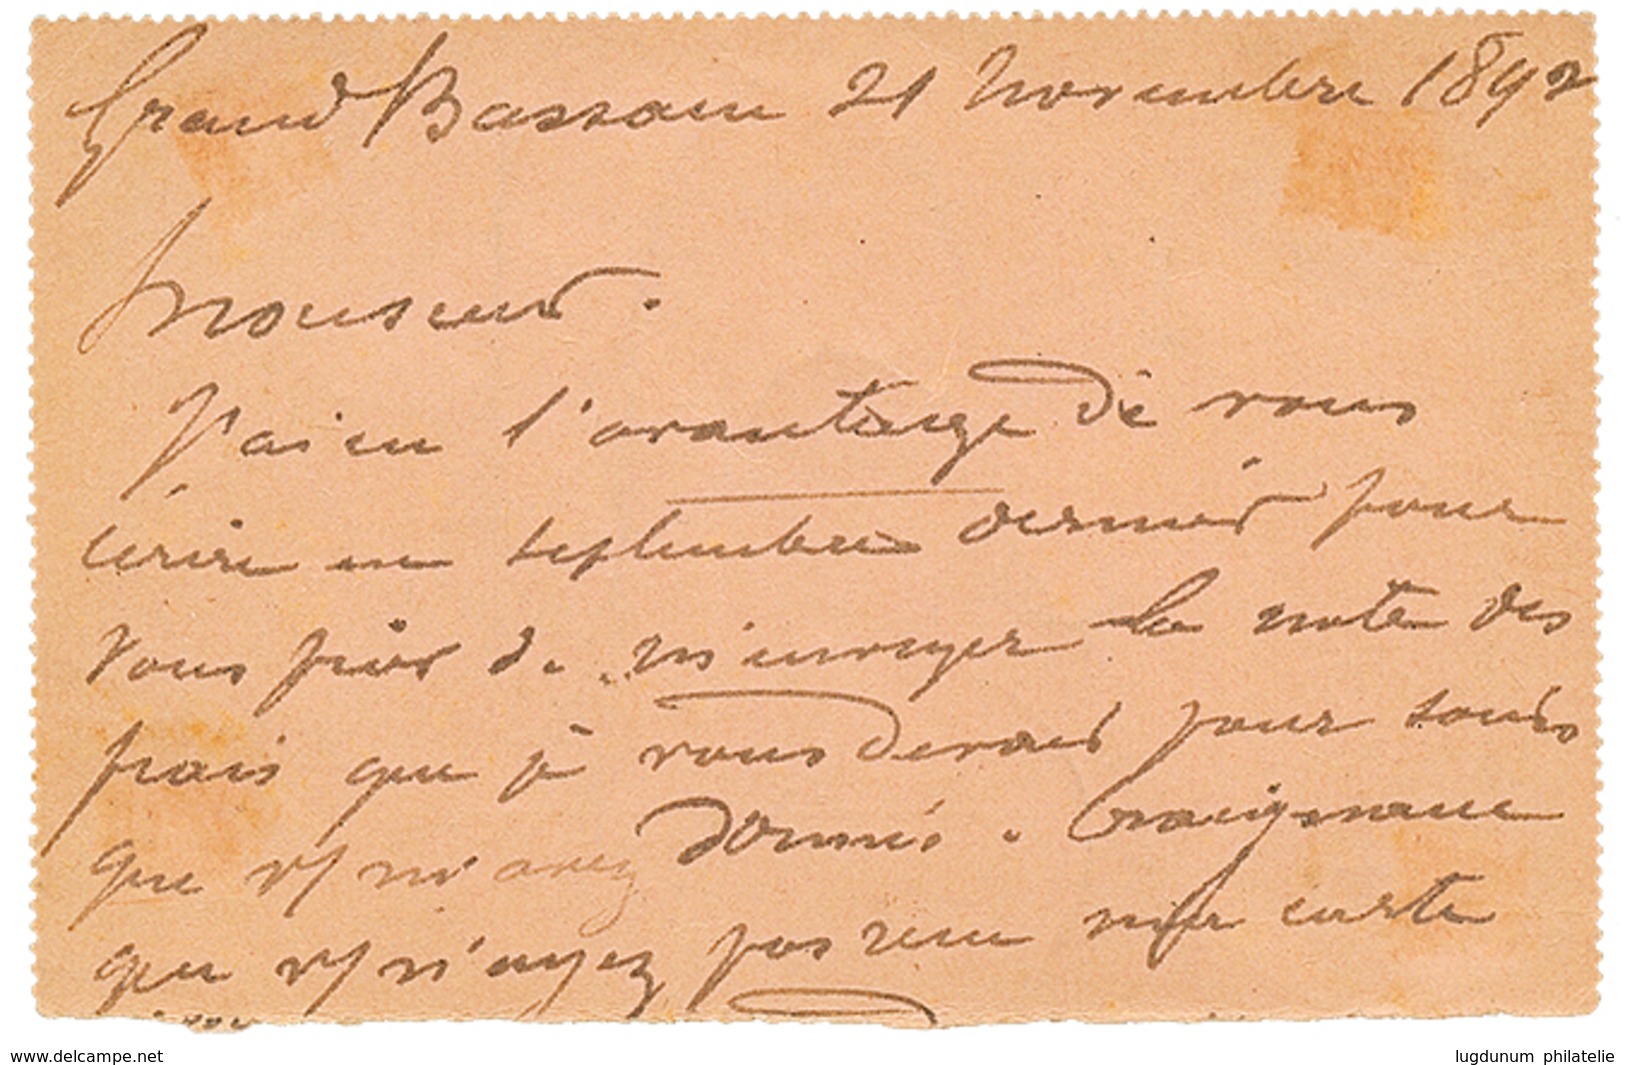 Grand Bassam 21 Novembre 1892
Monsieur.
J'ai eu l'avantage de vous
écrire en septembre dernier pour
vous prier de m'envoyer la note des
frais que je vous devais pour soins
que v/ m'avez donnés. Craignant
que v/ n'ayez pas reçu ma carte
www.delcampe.net
lugdunum philatelie